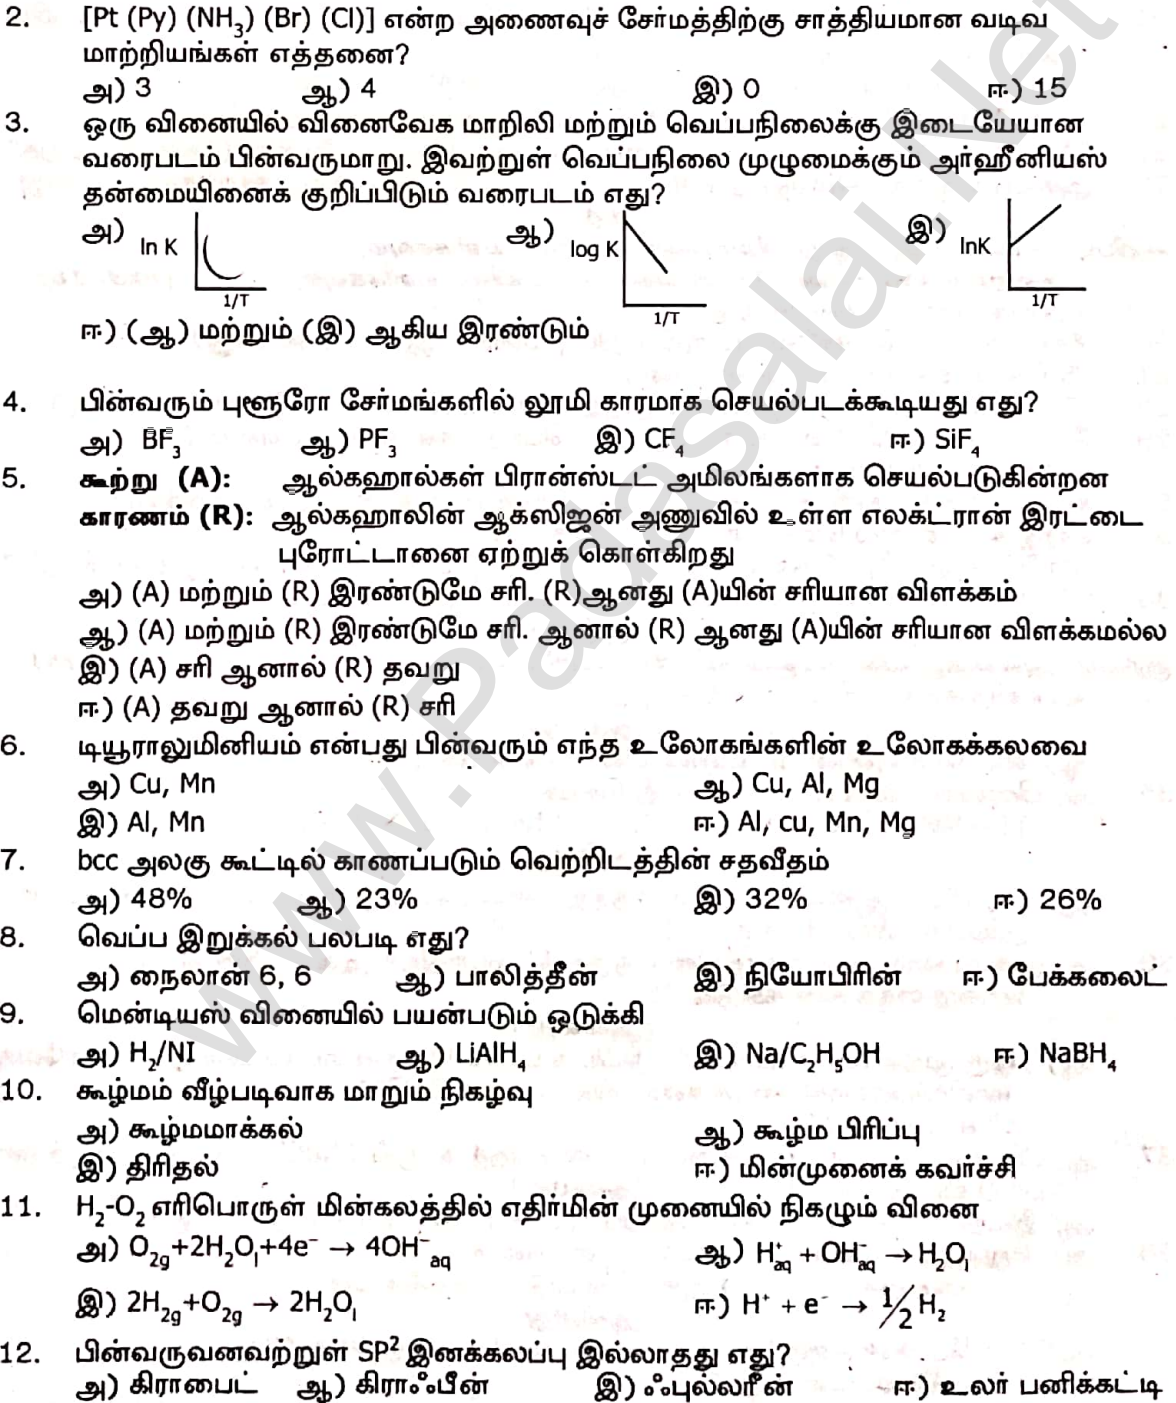 2. [Pt (Py) (NH₃) (Br) (Cl)] என்ற அணைவுச் சேர்மத்திற்கு சாத்தியமான வடிவ
மாற்றியங்கள் எத்தனை?
அ) 3 ஆ) 4 இ) 0 ஈ) 15
3. ஒரு வினையில் வினைவேக மாறிலி மற்றும் வெப்பநிலைக்கு இடையேயான
வரைபடம் பின்வருமாறு. இவற்றுள் வெப்பநிலை முழுமைக்கும் அர்ஹீனியஸ்
தன்மையினைக் குறிப்பிடும் வரைபடம் எது?
அ) ln K 1/T ஆ) log K 1/T இ) lnK 1/T
ஈ) (ஆ) மற்றும் (இ) ஆகிய இரண்டும்
4. பின்வரும் புளூரோ சேர்மங்களில் லூமி காரமாக செயல்படக்கூடியது எது?
அ) BF₃ ஆ) PF₃ இ) CF₄ ஈ) SiF₄
5. கூற்று (A): ஆல்கஹால்கள் பிரான்ஸ்டட் அமிலங்களாக செயல்படுகின்றன
காரணம் (R): ஆல்கஹாலின் ஆக்ஸிஜன் அணுவில் உள்ள எலக்ட்ரான் இரட்டை
புரோட்டானை ஏற்றுக் கொள்கிறது
அ) (A) மற்றும் (R) இரண்டுமே சரி. (R)ஆனது (A)யின் சரியான விளக்கம்
ஆ) (A) மற்றும் (R) இரண்டுமே சரி. ஆனால் (R) ஆனது (A)யின் சரியான விளக்கமல்ல
இ) (A) சரி ஆனால் (R) தவறு
ஈ) (A) தவறு ஆனால் (R) சரி
6. டியூராலுமினியம் என்பது பின்வரும் எந்த உலோகங்களின் உலோகக்கலவை
அ) Cu, Mn ஆ) Cu, Al, Mg
இ) Al, Mn ஈ) Al, cu, Mn, Mg
7. bcc அலகு கூட்டில் காணப்படும் வெற்றிடத்தின் சதவீதம்
அ) 48% ஆ) 23% இ) 32% ஈ) 26%
8. வெப்ப இறுக்கல் பலபடி எது?
அ) நைலான் 6, 6 ஆ) பாலித்தீன் இ) நியோபிரின் ஈ) பேக்கலைட்
9. மென்டியஸ் வினையில் பயன்படும் ஒடுக்கி
அ) H₂/NI ஆ) LiAlH₄ இ) Na/C₂H₅OH ஈ) NaBH₄
10. கூழ்மம் வீழ்படிவாக மாறும் நிகழ்வு
அ) கூழ்மமாக்கல் ஆ) கூழ்ம பிரிப்பு
இ) திரிதல் ஈ) மின்முனைக் கவர்ச்சி
11. H₂-O₂ எரிபொருள் மின்கலத்தில் எதிர்மின் முனையில் நிகழும் வினை
அ) O₂g+2H₂Oₗ+4e⁻ → 4OH⁻aq ஆ) H⁺aq + OH⁻aq → H₂Oₗ
இ) 2H₂g+O₂g → 2H₂Oₗ ஈ) H⁺ + e⁻ → 1/2 H₂
12. பின்வருவனவற்றுள் SP² இனக்கலப்பு இல்லாதது எது?
அ) கிராபைட் ஆ) கிராஃபீன் இ) ஃபுல்லரீன் ஈ) உலர் பனிக்கட்டி
www.Padasalai.Net